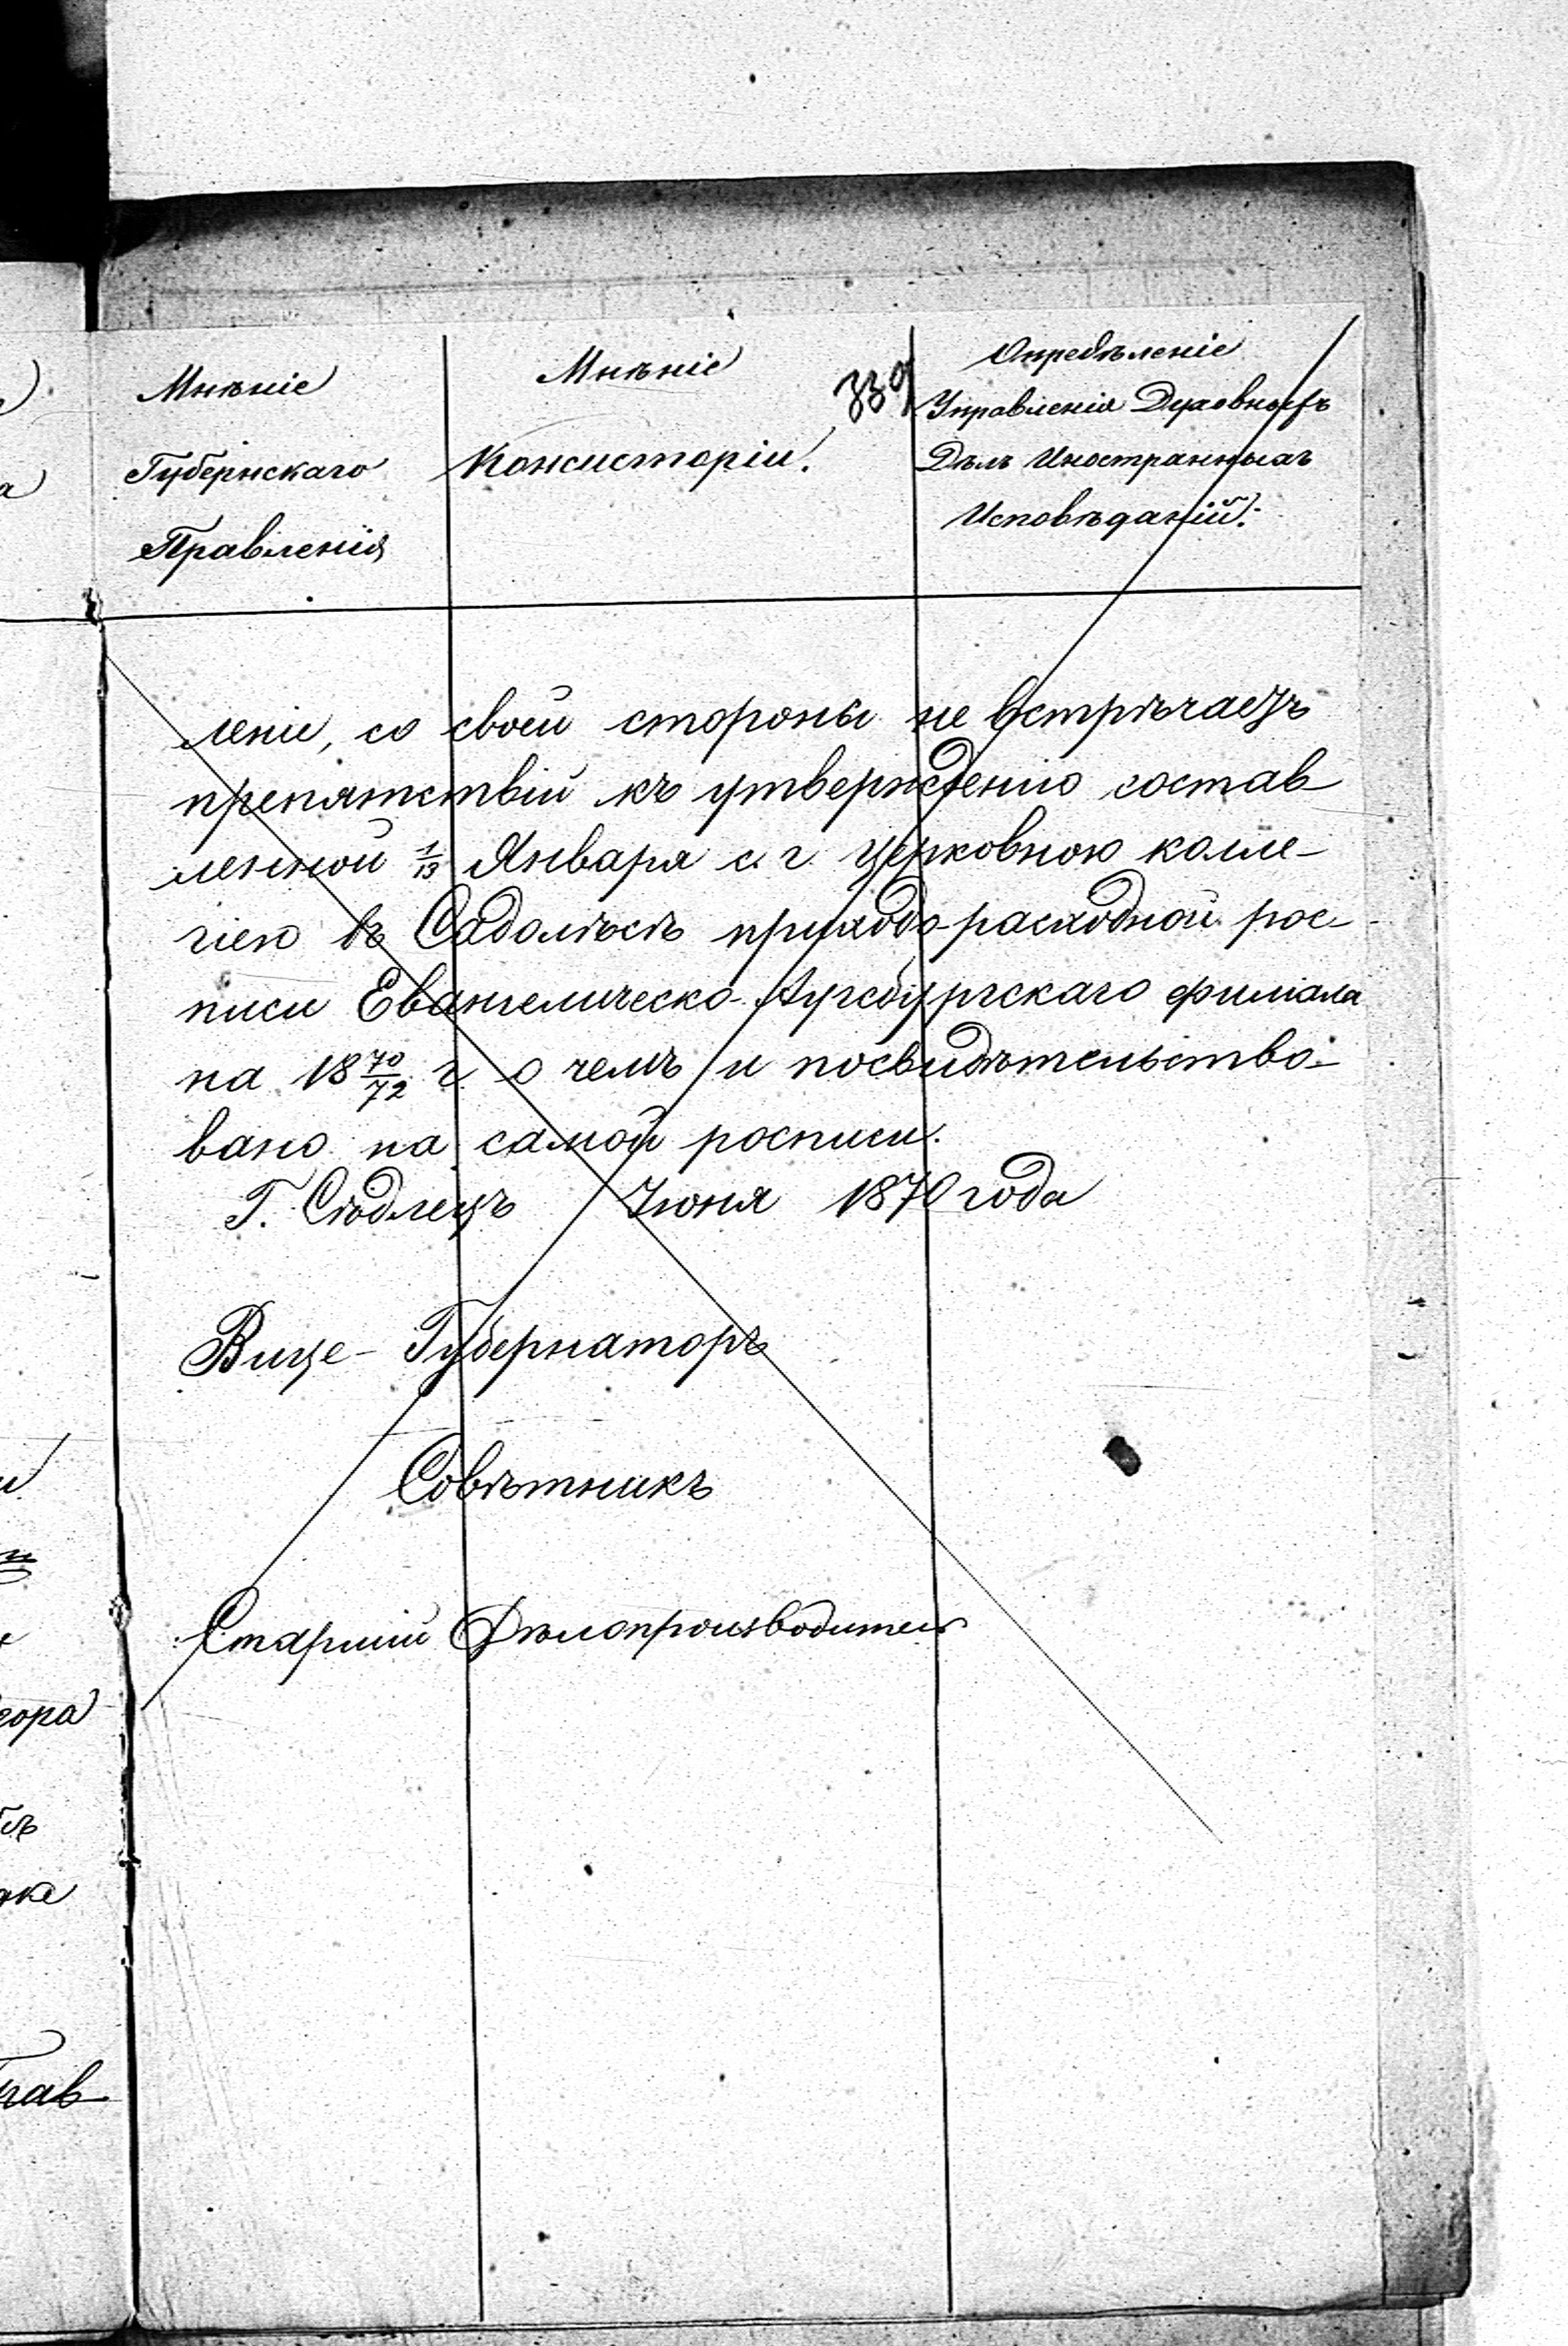 Мнѣніе
Губернскаго
Правленія
Мнѣніе
Консисторіи.
339
Опредѣленіе
Управленія Духовныхъ
Дѣлъ Иностранныхъ
Исповѣданій.
леніе, со своей стороны не встрѣчаетъ
препятствій къ утвержденію состав
ленной 1/13 Января с. г. церковною колле-
гіею въ Садолѣсѣ приходо-расходной рос-
писи Евангелическо-Аугсбургскаго филіала
на 18 70/72 г. о чемъ и посвидѣтельство-
вано на самой росписи.
Г. Сѣдлецъ Іюня 1870 года
Вице-Губернаторъ
Совѣтникъ
Старшій Дѣлопроизводитель
гора
же
Прав